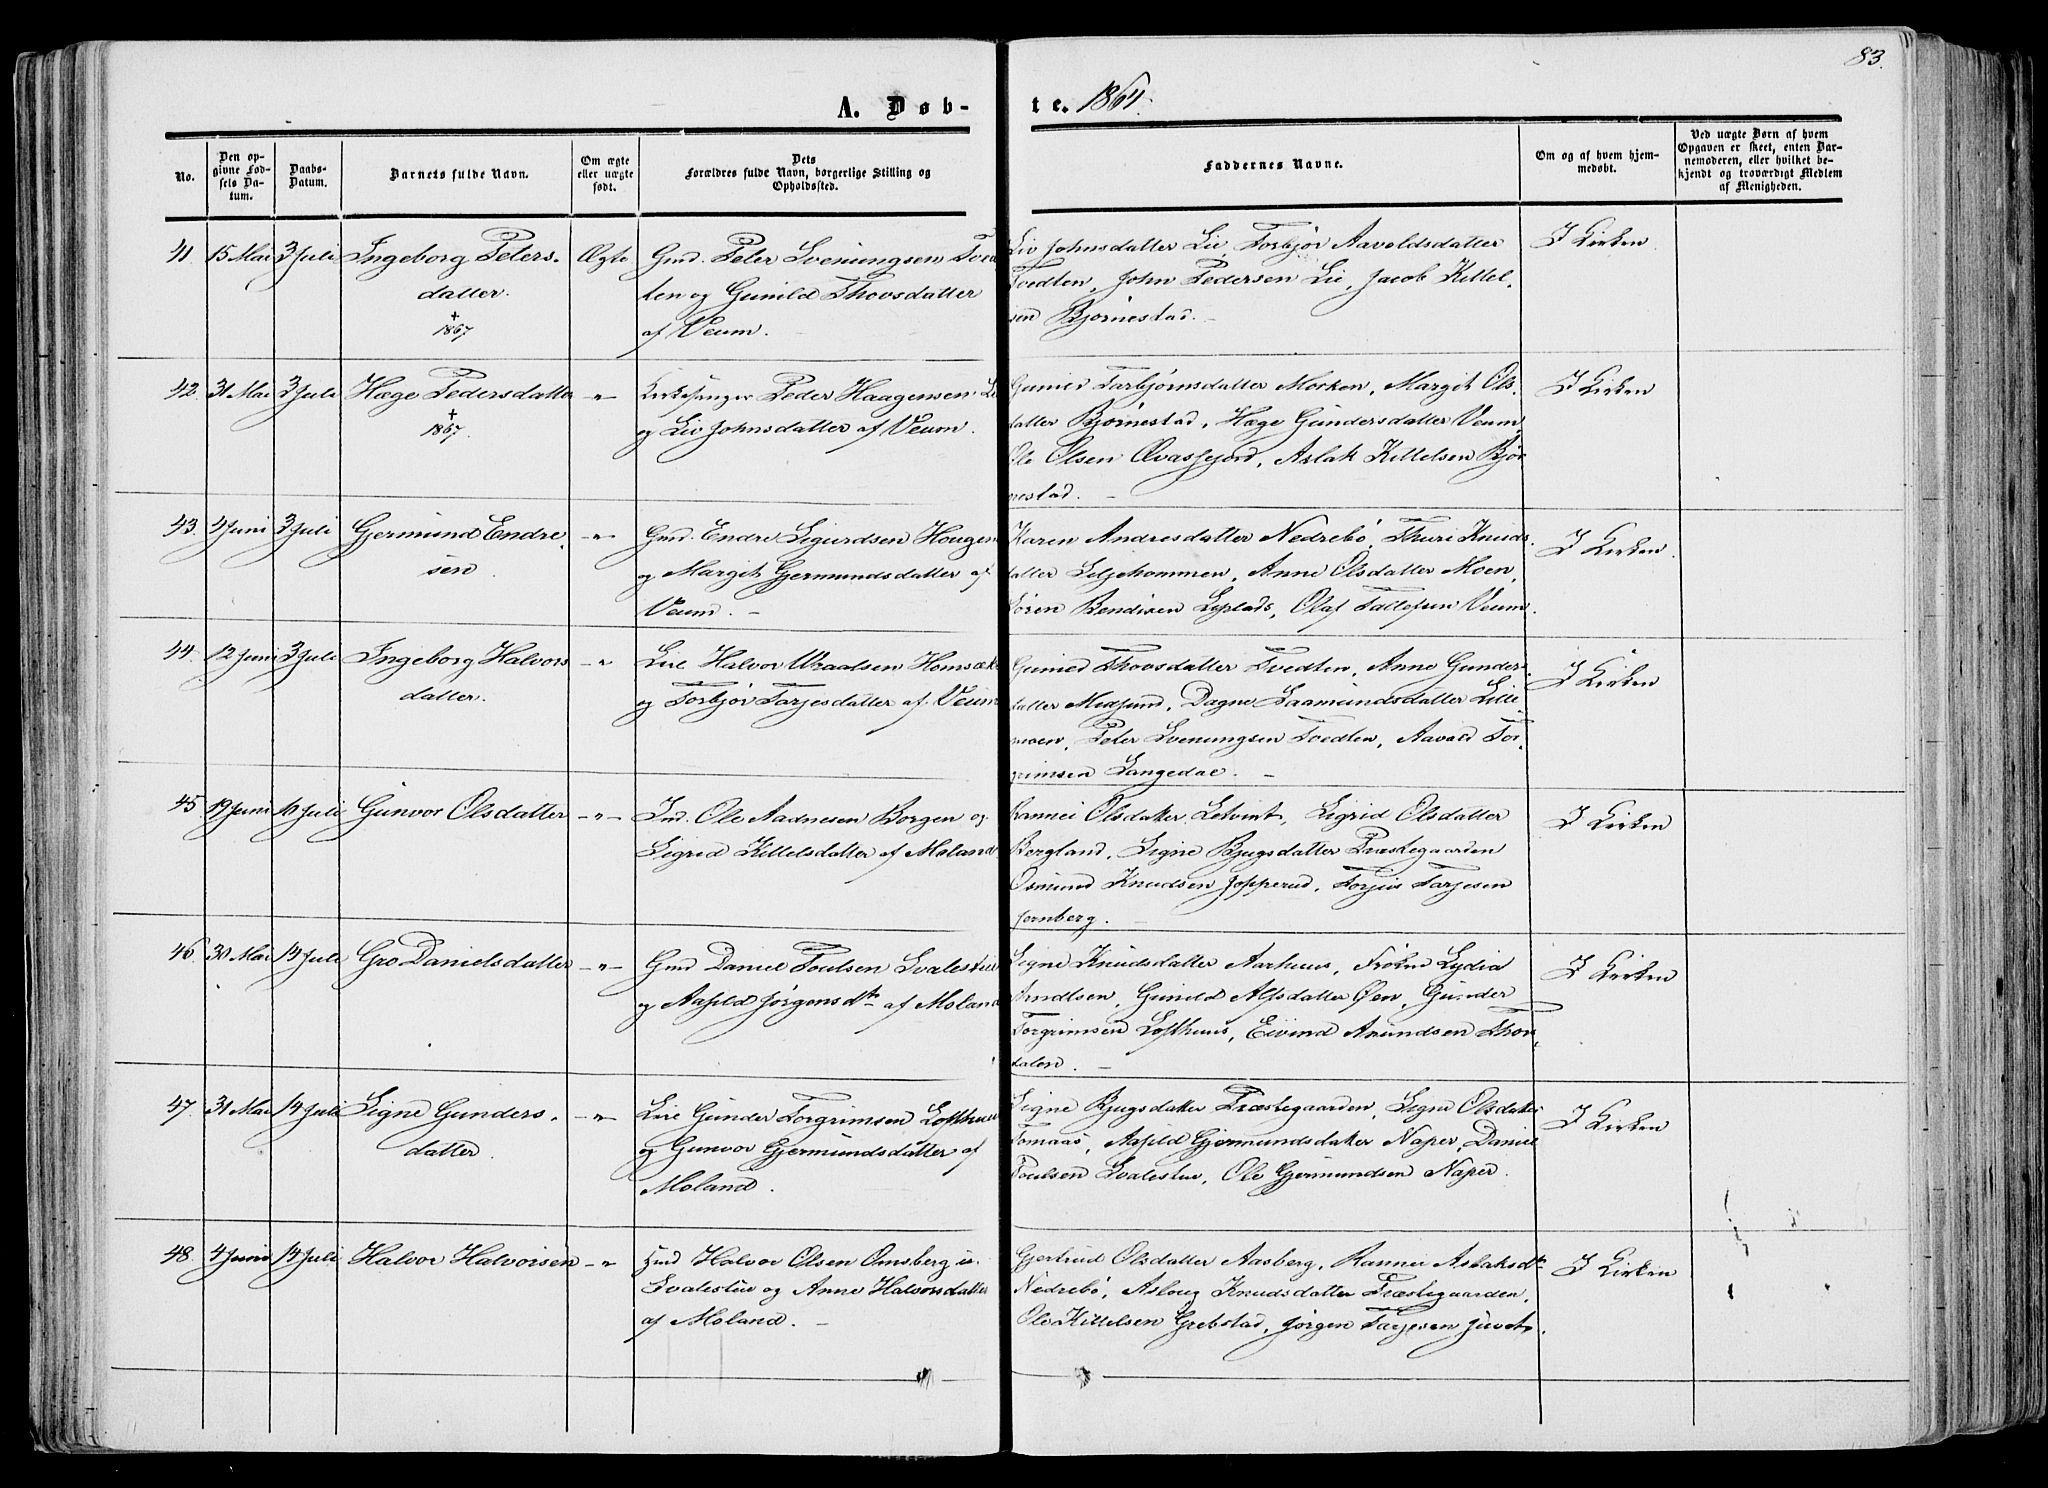 83.
A. Døb-
te. 1864.
No.
Den op-
givne Fød-
sels Da-
tum.
Daabs-
Datum.
Barnets fulde Navn.
Om ægte
eller uægte
født.
Dets
Forældres fulde Navn, borgerlige Stilling og
Opholdssted.
Faddernes Navne.
Om og af hvem hjem-
medøbt.
Ved uægte Børn af hvem
Opgaven er skeet, enten Bar-
nemoderen, eller hvilket be-
kjendt og troværdigt Medlem
af Menigheden.
41. 15 Mai 3 Juli Ingeborg Peters-
datter.
+
1867
Ægte
Gmd. Peter Svenungsen Tved
ten og Gunild Thovsdatter
af Veum.
Liv Johnsdatter Lie, Torbjør Aavoldsdatter
Tvedten, John Pedersen Lie, Jacob Kittel-
sen Bjørnestad. -
I Kirken.
42. 31 Mai 3 Juli Hæge Pedersdatter
+
1867.
-"-
Kirkesanger Peder Haagensen Li
og Liv Johnsdatter af Veum.
Gunild Tarbjørnsdatter Morken, Margit Ols-
datter Bjørnestad, Hæge Gundersdatter Veum,
Ole Olsen Qvasfjord, Aslak Kittelsen Bjør
nestad. -
I Kirken
43. 4 Juni 3 Juli Gjermund Endre-
sen.
-"-
Gmd. Endre Sigurdsen Hougen
og Margit Gjermundsdatter af
Veum. -
Karen Andresdatter Nedrebö, Thuri Knuds-
datter Liljehommen, Anne Olsdatter Moen,
Sören Bendixen Lyplads, Olaf Tallefsen Veum.
I Kirken.
44. 12 Juni 3 Juli Ingeborg Halvors
datter.
-"-
Leie Halvor Wraalsen Homsæk
og Torbjör Tarjesdatter af Veum
Gunild Thovsdatter Tvedten, Anne Gunder-
datter Midsund, Dagne Saamundsdatter Lille-
moen, Peter Svenungsen Tvedten, Aavold Tor-
grimsen Langedal. -
I Kirken
45 19 Juni 10 Juli Gunvor Olsdatter
-"-
Ind. Ole Aadnesen Borgen og
Sigrid Kittelsdatter af Moland
Rannei Olsdatter Letvint, Sigrid Olsdatter
Bergland, Signe Bjugsdatter Præstegaarden
Osmund Knudsen Jopperud, Torjus Tarjesen
Jernberg. -
I Kirken
46. 30 Mai 14 Juli Gro Danielsdatter
-"-
Gmd Daniel Poulsen Svalestul
og Aasild Jørgensdtr af Moland
Signe Knudsdatter Aarhuus, Frøken Lydia
Arndtsen, Gunild Alfsdatter Øen, Gunder
Torgrimsen Lofthuus, Eivind Amundsen Thor
dalen. -
I Kirken
47. 31 Mai 14 Juli Signe Gunders-
datter.
-"-
Leie Gunder Torgrimsen Lofthuus
og Gunvor Gjermundsdatter af
Moland.
Signe Bjugsdatter Præstegaarden, Signe Olsdatter
Tomaas, Aasild Gjermundsdatter Naper, Daniel
Poulsen Svalestul, Ole Gjermundsen Naper.
I Kirken
48. 4 Juni 14 Juli Halvor Halvorsen
-"-
Halvor Olsen Omsberg
Svalestul og Anne Halvorsdatter
af Moland. -
Gjertrud Olsdatter Aasberg, Rannei Aslaksdtr
Nedrebö, Aslaug Knudsdatter Præstegaarden,
Ole Kittelsen Grebstad, Jörgen Tarjesen Juvet.
I Kirken